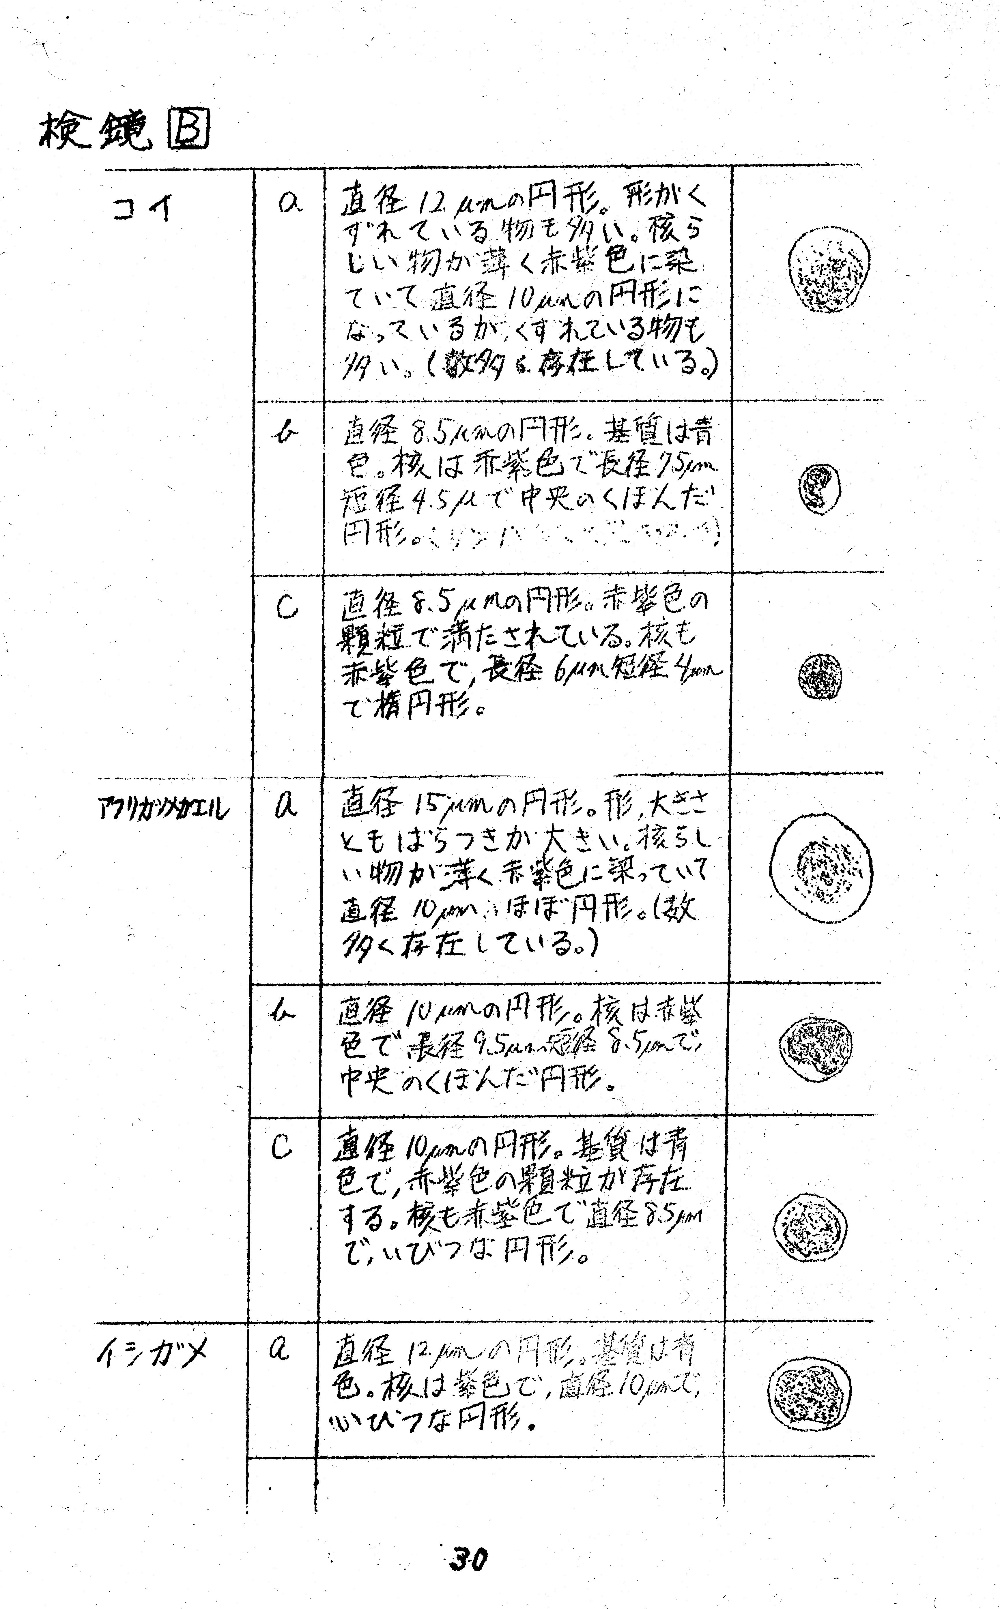 検鏡 B
コイ
a
直径12μmの円形。形がく
ずれている物も多い。核ら
しい物が薄く赤紫色に染
ていて直径10μmの円形に
なっているが、くずれている物も
多い。(数多く存在している。)
b
直径8.5μmの円形。基質は青
色。核は赤紫色で長径7.5μm
短径4.5μで中央のくぼんだ
円形。
c
直径8.5μmの円形。赤紫色の
顆粒で満たされている。核も
赤紫色で,長径6μm短径4μm
で楕円形。
アフリカツメガエル
a
直径15μmの円形。形,大きさ
ともばらつきが大きい。核らし
い物が薄く赤紫色に染っていて
直径10μm ほぼ円形。(数
多く存在している。)
b
直径10μmの円形。核は赤紫
色で長径9.5μm短径8.5μmで,
中央のくぼんだ円形。
C
直径10μmの円形。基質は青
色で,赤紫色の顆粒が存在
する。核も赤紫色で直径8.5μm
で,いびつな円形。
イシガメ
a
直径12μmの円形。基質は青
色。核は紫色で,直径10μmで,
いびつな円形。
30